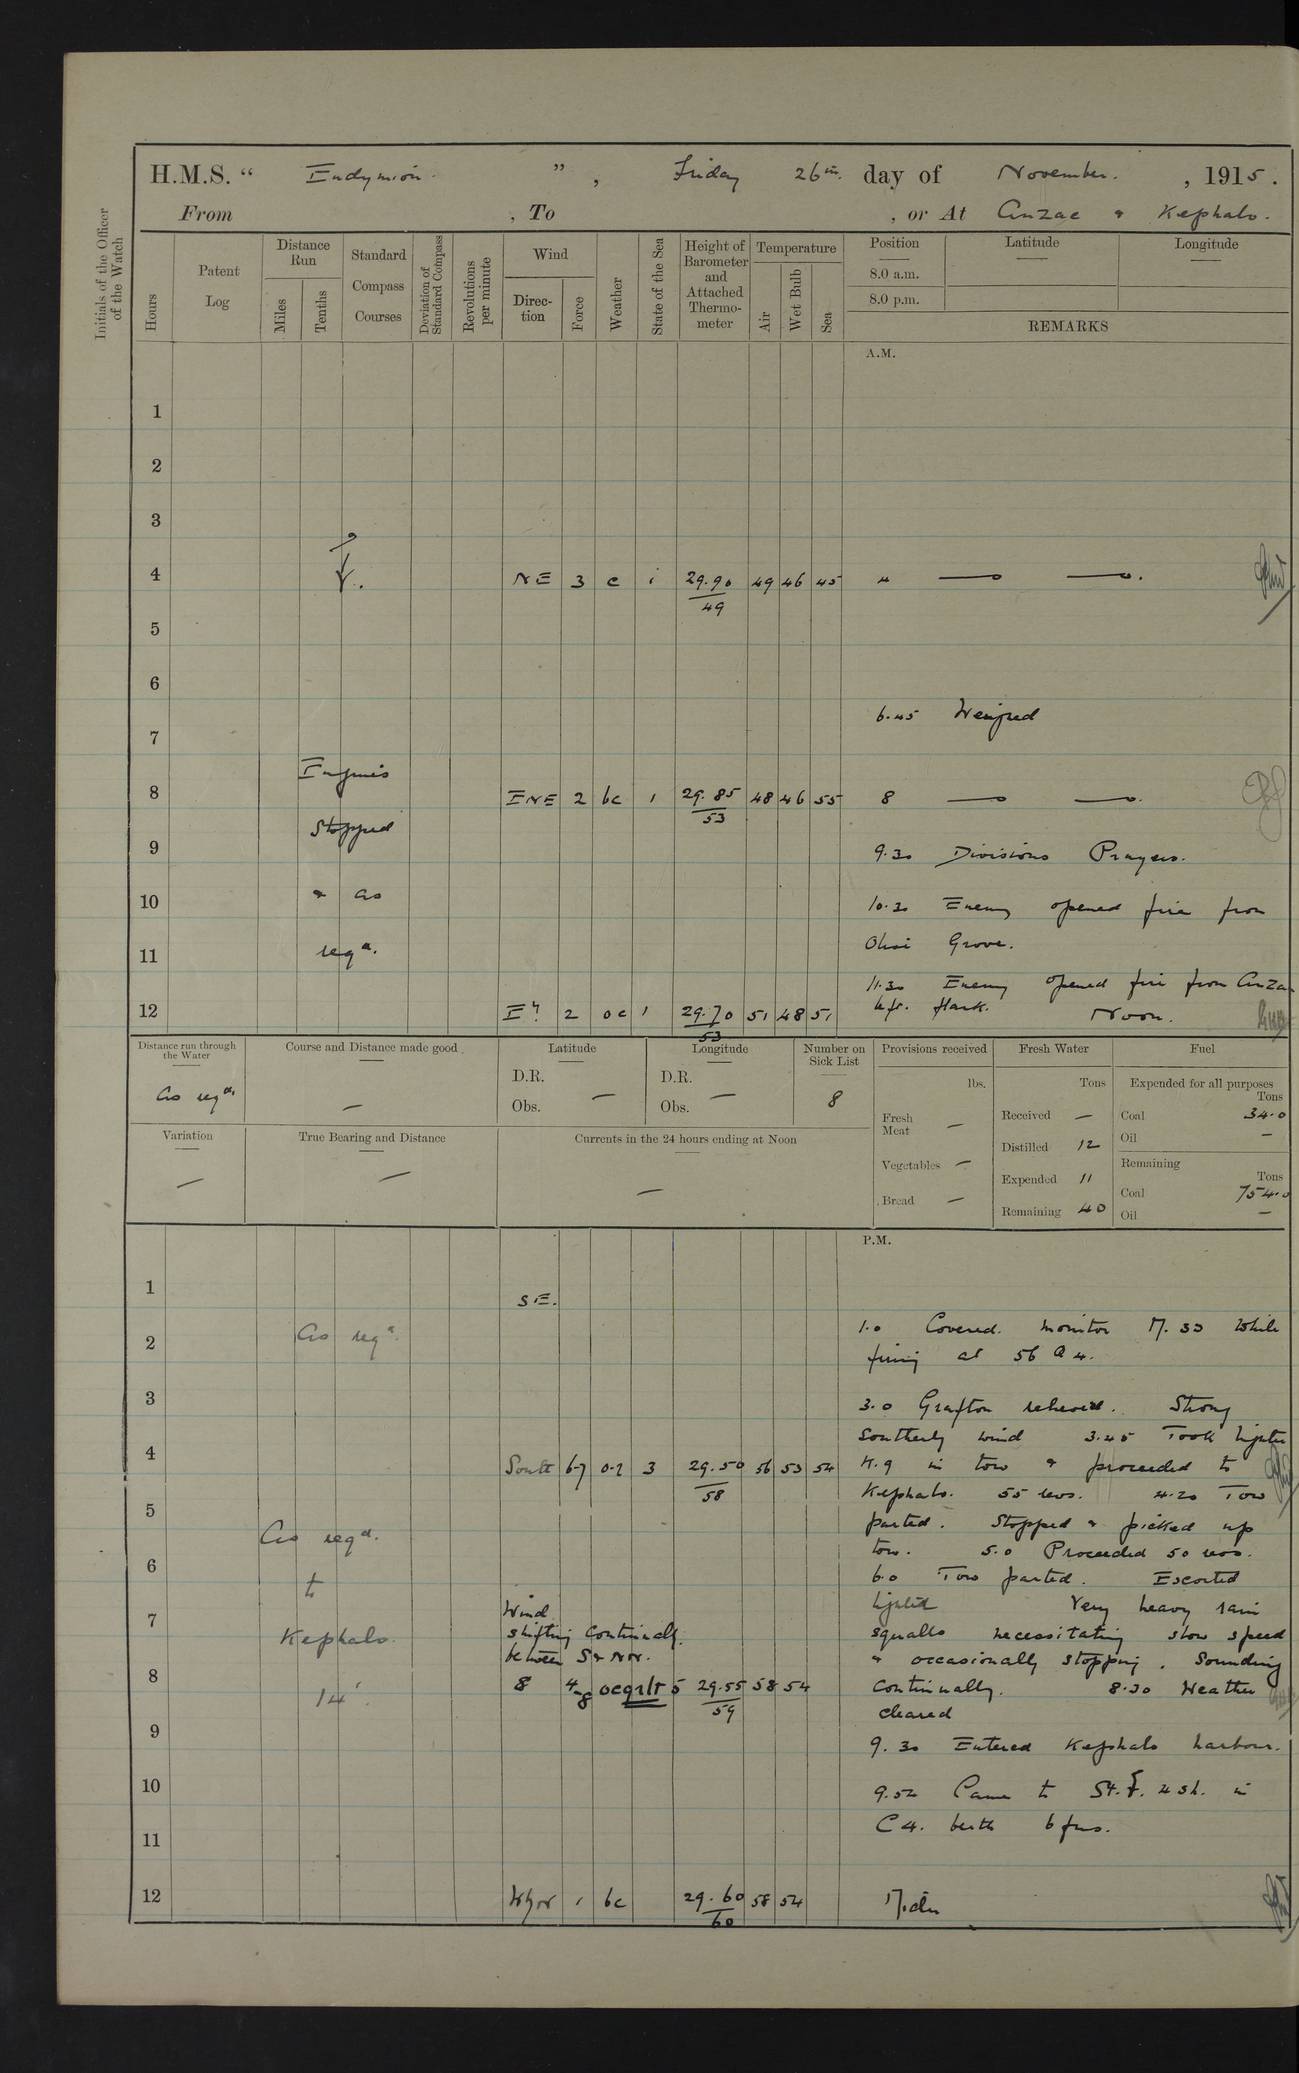 H.M.S. “ Endymion. ” , Friday 26th. day of November. , 1915.
From , To , or At Anzac & Kephalo.
Initials of the Officer of the Watch
Hours
Patent Log
Distance Run
Miles
Tenths
Standard Compass Courses
Deviation of Standard Compass
Revolutions per minute
Wind
Direction
Force
Weather
State of the Sea
Height of Barometer and Attached Thermometer
Temperature
Air
Wet Bulb
Sea
Position
Latitude
Longitude
8.0 a.m.
8.0 p.m.
REMARKS
A.M.
1
2
3
4 NE 3 c 1 29.90 49 46 45 4 — —.
49
5
6
6.45 Weighed
7
Engines
8 ENE 2 bc 1 29.85 48 46 55 8 — —.
53
Stopped
9
9.30 Divisions Prayers.
10 & as
10.30 Enemy opened fire from
11 reqd.
Olive Grove.
11.30 Enemy opened fire from Anzac
12 Ely. 2 oc 1 29.70 51 48 51 left flank. Noon.
53
Distance run through the Water
As reqd.
Course and Distance made good
—
Latitude
D.R.
Obs. —
Longitude
D.R.
Obs. —
Number on Sick List
8
Provisions received
lbs.
Fresh Meat —
Vegetables —
Bread —
Fresh Water
Tons
Received —
Distilled 12
Expended 11
Remaining 40
Fuel
Expended for all purposes
Tons
Coal 34.0
Oil —
Remaining
Tons
Coal 754.0
Oil —
Variation
—
True Bearing and Distance
—
Currents in the 24 hours ending at Noon
—
P.M.
1
SE.
2 As reqd.
1.0 Covered. Monitor M.33 while
firing at 56 Q 4.
3
3.0 Grafton relieved. Strong
Southerly wind 3.45 Took lighter
4 South 6-7 3 29.50 56 53 54 K.9 in tow & proceeded to
58
Kephalo. 55 revs. 4.20 Tow
5
parted. Stopped & picked up
As reqd.
tow. 5.0 Proceeded 50 revs.
6
6.0 Tow parted. Escorted
to
lighter Very heavy rain
7
Wind
shifting continually
between S & NW.
Kephalo.
squalls necessitating slow speed
& occasionally stopping. Sounding
8 8 4-8 ocqrlt 5 29.55 58 54 continually. 8.30 Weather
59
14'.
cleared
9
9.30 Entered Kephalo harbour.
10
9.52 Came to St. 4 sh. in
C 4. berth 6 fms.
11
12 1 bc 29.60 58 54 Midn
60